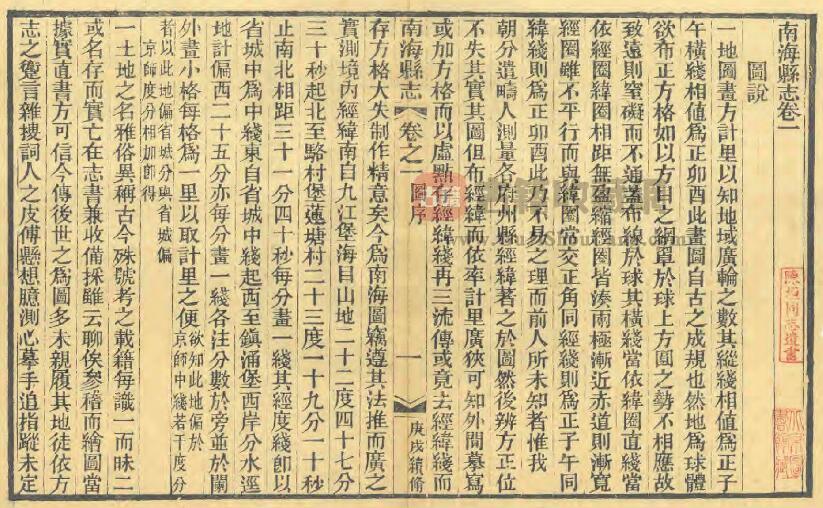 南海縣志卷一
圖說
一地圖畫方計里以知地域廣輪之數其縱綫相值爲正子
午橫綫相值爲正卯酉此畫圖自古之成規也然地爲球體
欲布正方格如以方目之網罩於球上方圓之勢不相應故
致遠則窒礙而不通蓋布線於球其橫綫當依緯圈直綫當
依經圈緯圈相距無盈縮經圈皆湊兩極漸近赤道則漸寬
經圈雖不平行而與緯圈常交正角同經綫則爲正子午同
緯綫則爲正卯酉此乃不易之理而前人所未知者惟我
朝分遣疇人測量各府州縣經緯著之於圖然後辨方正位
不失其實其圖但布經緯而依率計里廣狹可知外間摹寫
或加方格而以虛點存經緯綫再三流傳或竟去經緯綫而
南海縣志 卷之一 圖序 一 庚戌續修
存方格大失制作精意矣今爲南海圖竊遵其法推而廣之
實測境内經緯南自九江堡海目山地二十二度四十七分
三十秒起北至駱村堡蓮塘村二十三度一十九分一十秒
止南北相距三十一分四十秒每分畫一綫其經度綫卽以
省城中爲中綫東自省城中綫起西至鎮涌堡西岸分水逕
地計偏西二十五分亦每分畫一綫各注分數於旁並於闌
外畫小格每格爲一里以取計里之便 欲知此地偏於
京師中綫若干度分
者以此地偏省城分與省城偏
京師度分相加卽得
一土地之名雅俗異稱古今殊號考之載籍每識一而昧二
或名存而實亡在志書兼收備採雖云聊俟參稽而繪圖當
據實直書方可信今傳後世之爲圖多未親履其地徒依方
志之躗言雜搜詞人之皮傅懸想臆測心摹手追指蹤未定
陳垣同志遺書